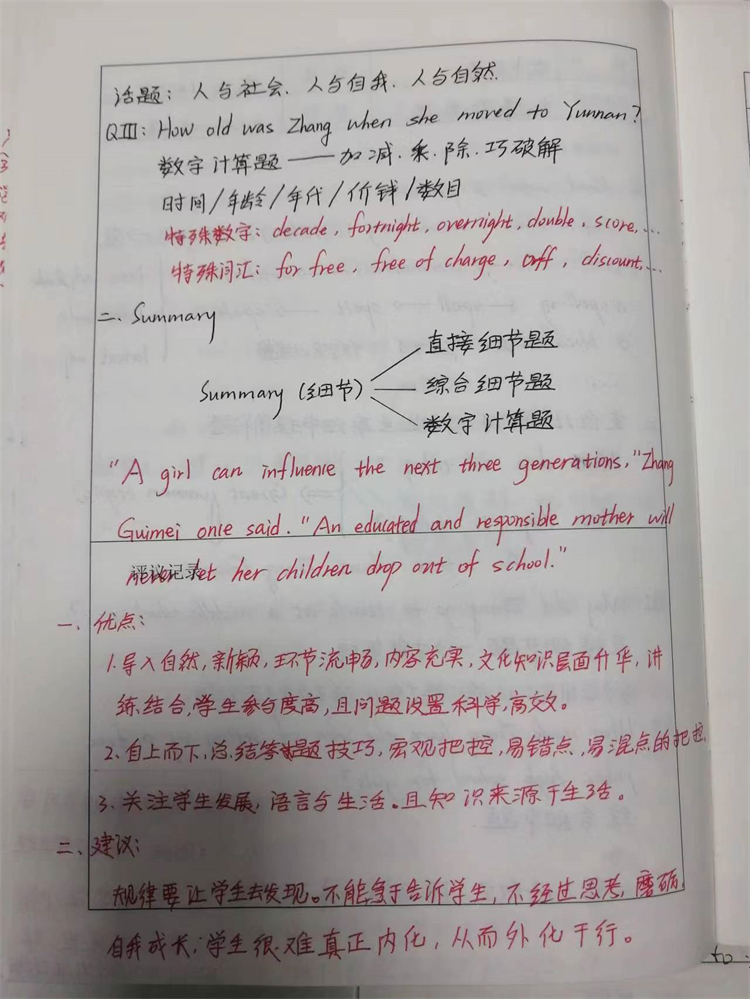 话题：人与社会、人与自我、人与自然
QⅢ: How old was Zhang when she moved to Yunnan?
数字计算题——加.减.乘.除.巧破解
时间/年龄/年代/价钱/数目
特殊数字: decade, fortnight, overnight, double, score,...
特殊词汇: for free, free of charge, off, discount,...
二、Summary
直接细节题
Summary (细节) 综合细节题
数字计算题
"A girl can influence the next three generations," Zhang
Guimei once said. "An educated and responsible mother will
评议记录
never let her children drop out of school."
一、优点:
1.导入自然,新颖,环节流畅,内容充实,文化知识层面升华,讲
练结合,学生参与度高,且问题设置科学,高效。
2.自上而下,总结答题技巧,宏观把控,易错点,易混点的把控,
3.关注学生发展,语言与生活。且知识来源于生活。
二、建议:
规律要让学生去发现。不能急于告诉学生,不经过思考,磨砺,
自我成长;学生很难真正内化,从而外化于行。